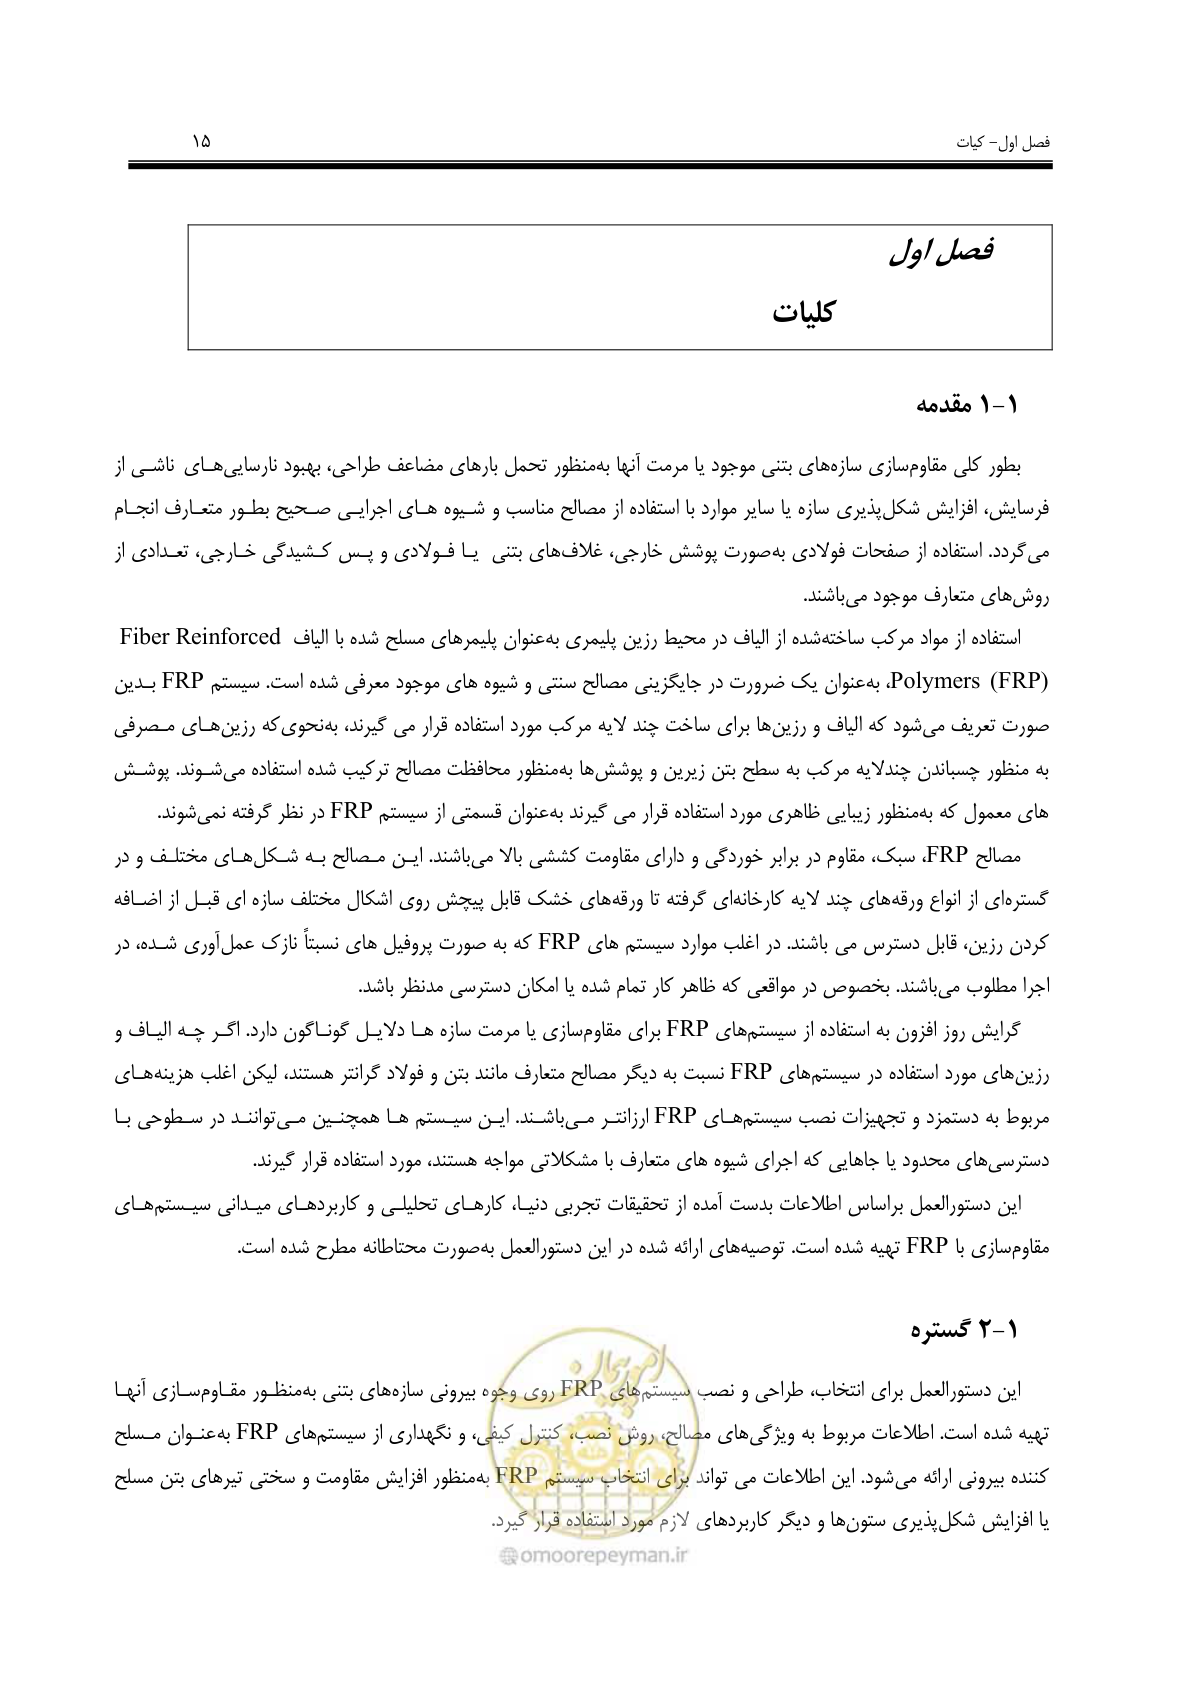 فصل اول- کیات
۱۵
فصل اول
کلیات
۱-۱ مقدمه
بطور کلی مقاوم‌سازی سازه‌های بتنی موجود یا مرمت آنها به‌منظور تحمل بارهای مضاعف طراحی، بهبود نارسایی‌هـای ناشـی از
فرسایش، افزایش شکل‌پذیری سازه یا سایر موارد با استفاده از مصالح مناسب و شـیوه هـای اجرایـی صـحیح بطـور متعـارف انجـام
می‌گردد. استفاده از صفحات فولادی به‌صورت پوشش خارجی، غلاف‌های بتنی یـا فـولادی و پـس کـشیدگی خـارجی، تعـدادی از
روش‌های متعارف موجود می‌باشند.
استفاده از مواد مرکب ساخته‌شده از الیاف در محیط رزین پلیمری به‌عنوان پلیمرهای مسلح شده با الیاف Fiber Reinforced
Polymers (FRP)، به‌عنوان یک ضرورت در جایگزینی مصالح سنتی و شیوه های موجود معرفی شده است. سیستم FRP بـدین
صورت تعریف می‌شود که الیاف و رزین‌ها برای ساخت چند لایه مرکب مورد استفاده قرار می گیرند، به‌نحوی‌که رزین‌هـای مـصرفی
به منظور چسباندن چندلایه مرکب به سطح بتن زیرین و پوشش‌ها به‌منظور محافظت مصالح ترکیب شده استفاده می‌شـوند. پوشـش
های معمول که به‌منظور زیبایی ظاهری مورد استفاده قرار می گیرند به‌عنوان قسمتی از سیستم FRP در نظر گرفته نمی‌شوند.
مصالح FRP، سبک، مقاوم در برابر خوردگی و دارای مقاومت کششی بالا می‌باشند. ایـن مـصالح بـه شـکل‌هـای مختلـف و در
گستره‌ای از انواع ورقه‌های چند لایه کارخانه‌ای گرفته تا ورقه‌های خشک قابل پیچش روی اشکال مختلف سازه ای قبـل از اضـافه
کردن رزین، قابل دسترس می باشند. در اغلب موارد سیستم های FRP که به صورت پروفیل های نسبتاً نازک عمل‌آوری شـده، در
اجرا مطلوب می‌باشند. بخصوص در مواقعی که ظاهر کار تمام شده یا امکان دسترسی مدنظر باشد.
گرایش روز افزون به استفاده از سیستم‌های FRP برای مقاوم‌سازی یا مرمت سازه هـا دلایـل گونـاگون دارد. اگـر چـه الیـاف و
رزین‌های مورد استفاده در سیستم‌های FRP نسبت به دیگر مصالح متعارف مانند بتن و فولاد گرانتر هستند، لیکن اغلب هزینه‌هـای
مربوط به دستمزد و تجهیزات نصب سیستم‌هـای FRP ارزانتـر مـی‌باشـند. ایـن سیـستم هـا همچنـین مـی‌تواننـد در سـطوحی بـا
دسترسی‌های محدود یا جاهایی که اجرای شیوه های متعارف با مشکلاتی مواجه هستند، مورد استفاده قرار گیرند.
این دستورالعمل براساس اطلاعات بدست آمده از تحقیقات تجربی دنیـا، کارهـای تحلیلـی و کاربردهـای میـدانی سیـستم‌هـای
مقاوم‌سازی با FRP تهیه شده است. توصیه‌های ارائه شده در این دستورالعمل به‌صورت محتاطانه مطرح شده است.
۲-۱ گستره
این دستورالعمل برای انتخاب، طراحی و نصب سیستم‌های FRP روی وجوه بیرونی سازه‌های بتنی به‌منظـور مقـاوم‌سـازی آنهـا
تهیه شده است. اطلاعات مربوط به ویژگی‌های مصالح، روش نصب، کنترل کیفی، و نگهداری از سیستم‌های FRP به‌عنـوان مـسلح
کننده بیرونی ارائه می‌شود. این اطلاعات می تواند برای انتخاب سیستم FRP به‌منظور افزایش مقاومت و سختی تیرهای بتن مسلح
یا افزایش شکل‌پذیری ستون‌ها و دیگر کاربردهای لازم مورد استفاده قرار گیرد.
امور پیمان
@omoorepeyman.ir